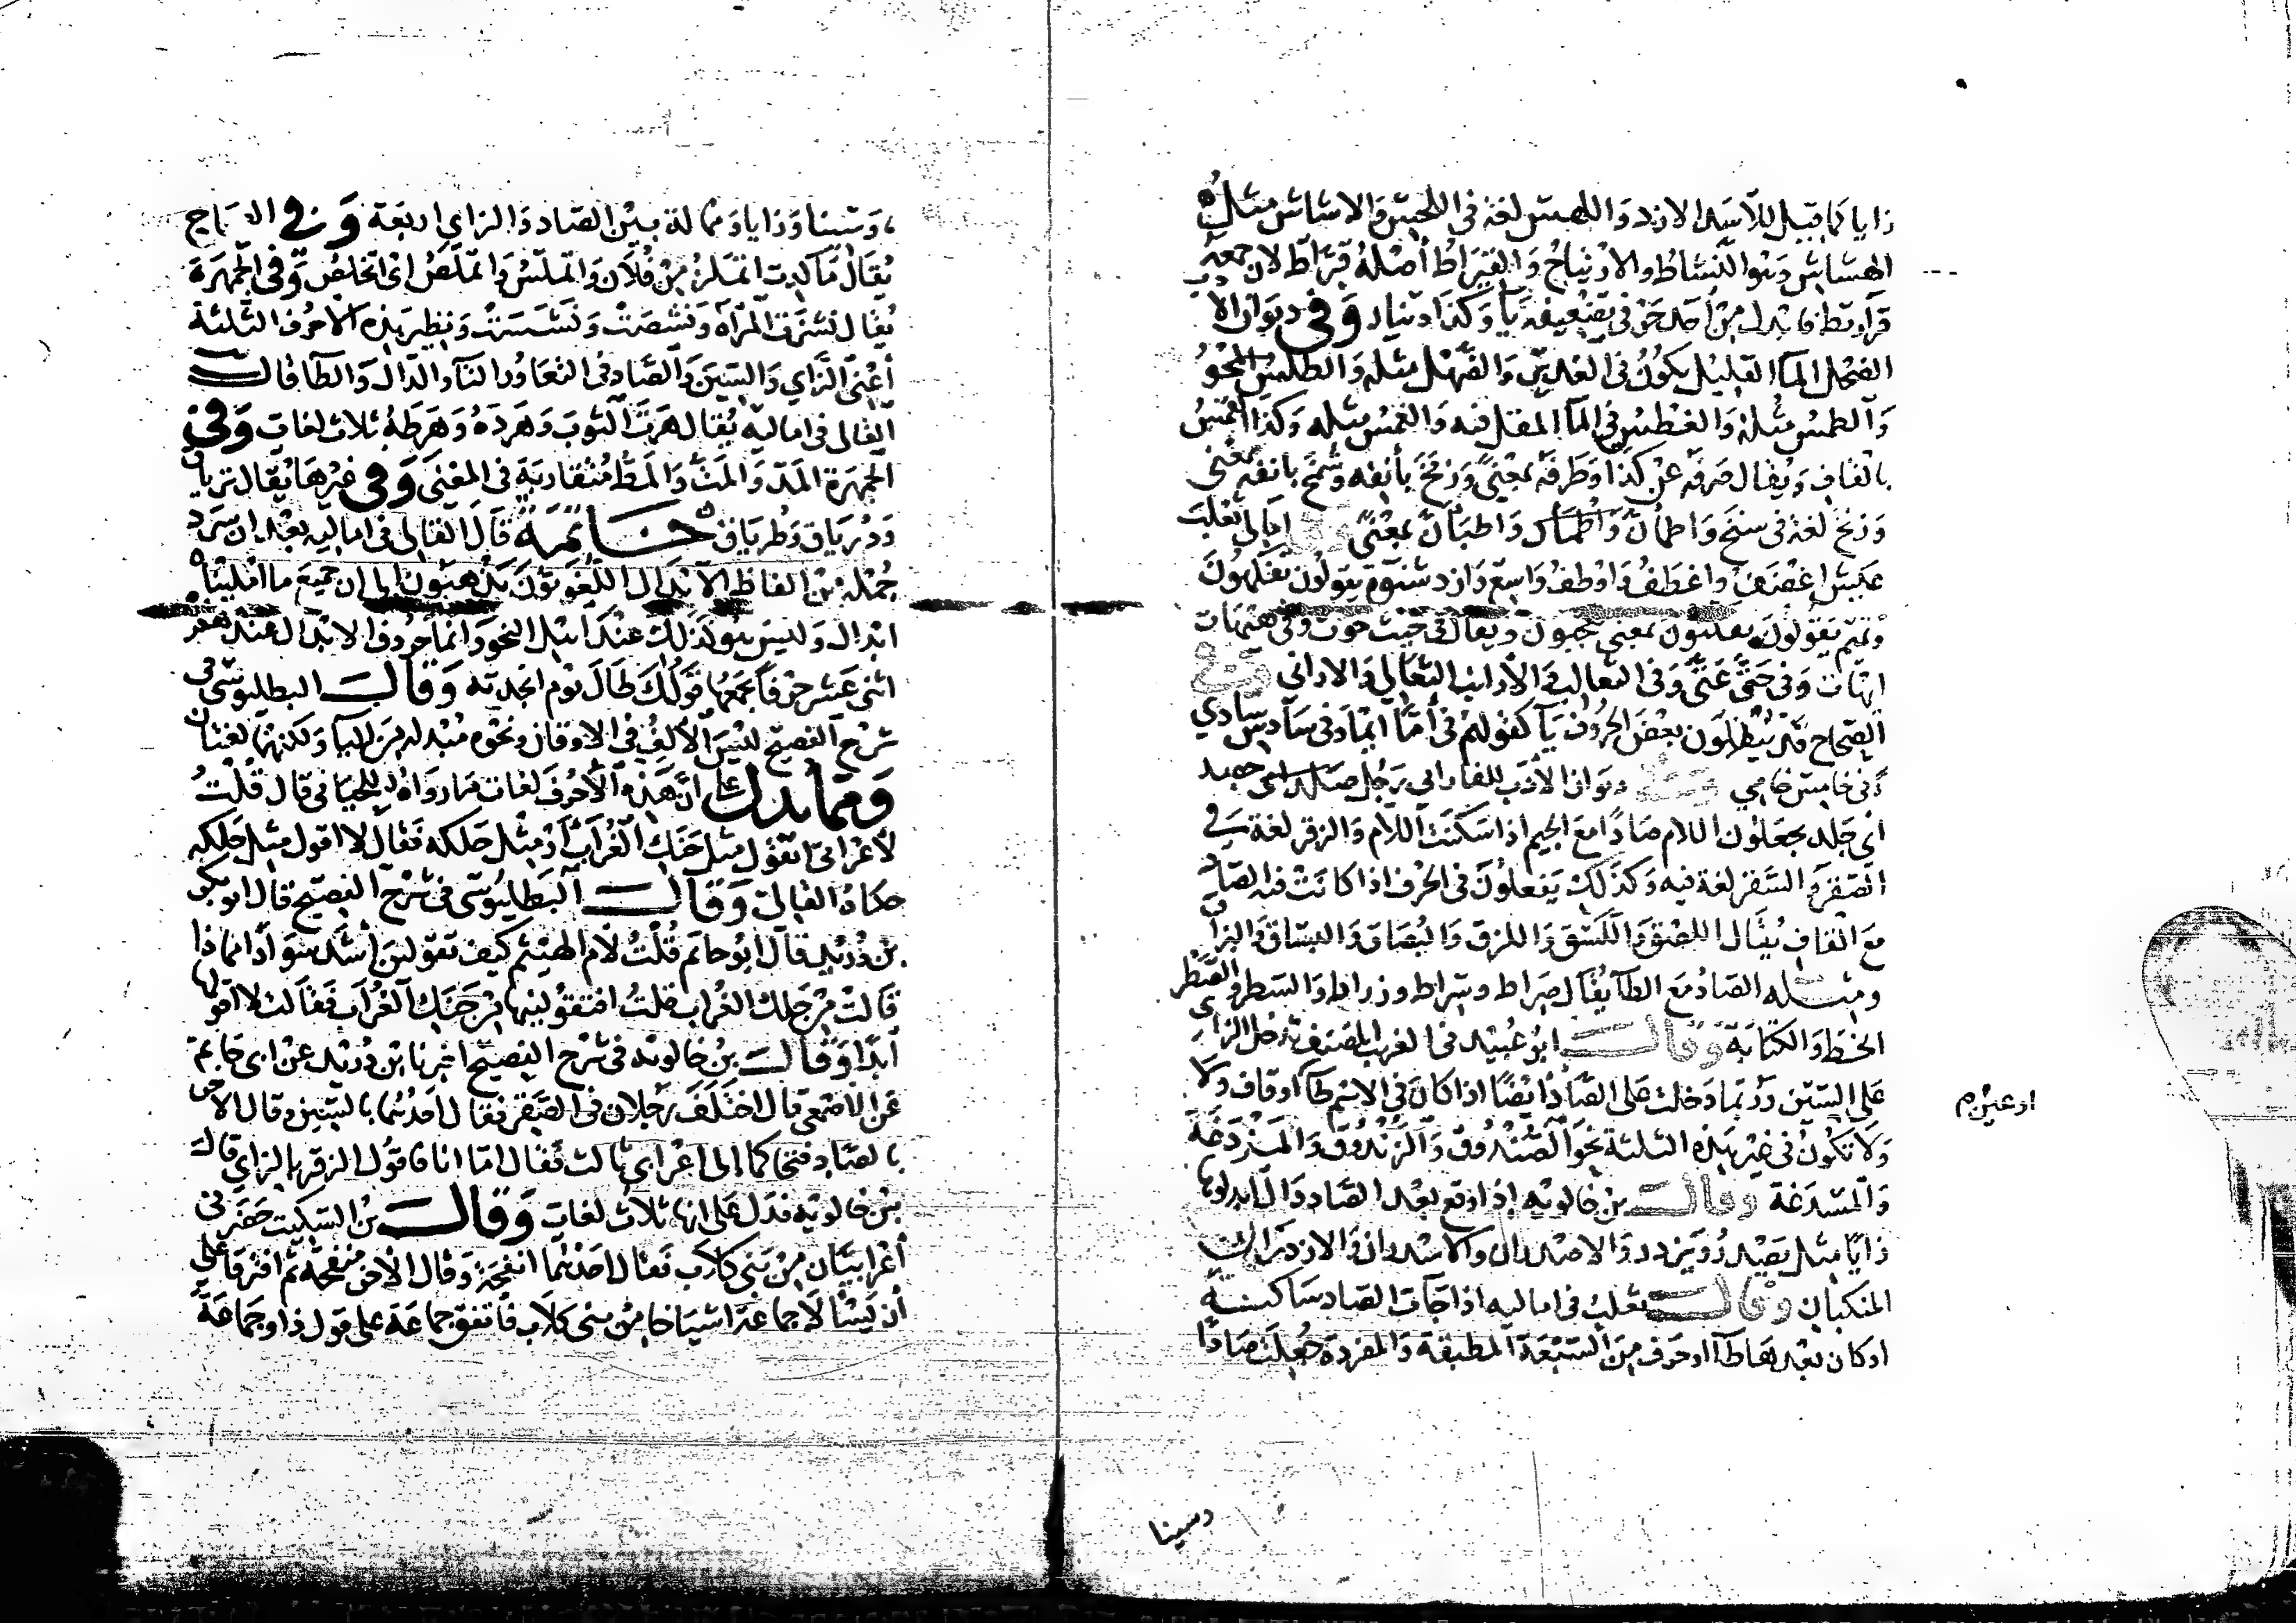 زايا كما قيل للاسد الازد واللهس لغة في اللحس والاشاش مثل
الهشاش وهو النشاط والارتياح والقيراط أصله قراط لان جمعه
قراريط فابدل من أحد حرفي تضعيفه يا وكذا دينار وفي ديوان الا
الضحل الما القليل يكون في الغدير والضهل مثله والطلس المحو
والطمس مثله والغطس في الما المقل فيه والغمس مثله وكذا القمس
بالقاف ويقال صرفه عن كذا وطرفه بمعنى وزمخ بأنفه وشمخ بانفه بمعنى
وزنخ لغة في سنخ واطمأن واطبأن بمعنى امالي ثعلب
عيش اغضف واغطف واوطف واسع وازد شنوة يقولون تفكهون
وتميم يقولون تفكنون بمعنى تعجبون ويقال في حيث حوث وفي هيهات
ايهات وفي حتى عتى وفي الثعالب والأرانب الثعالي والاراني وفي
الصحاح قد يبدلون بعض الحروف يا كقولهم في أما ايما وفي سادس سادي
وفي خامس خامي وفي ديوان الأدب للفارابي رجل صلد اي جصد
اي جلد يجعلون اللام صادا مع الجيم اذا سكنت اللام والزقر لغة في
الصقر والسقر لغة فيه وكذلك يفعلون في الحرف اذا كانت فيه الصاد
مع القاف يقال اللصق واللسق واللزق والبصاق والبساق والبزاق
ومثله الصاد مع الطا يقال صراط وسراط وزراط والسطر والصطر
الخط والكتابة وقال ابو عبيد في الغريب المصنف تدخل الزاي
على السين وربما دخلت على الصاد ايضا اذا كان في الاسم طا او قاف ولا
او غين م
ولا تكون في غير هذه الثلثة نحو الصندوق والزندوق والمزدغة
والمسدغة وقال بن خالويه اذا وقع بعد الصاد دال ابدلوها
زايا مثل يصدر ويزدر والاصدران والاسدران والازدران
المنكبان وقال ثعلب في اماليه اذا جآت الصاد ساكنة
او كان بعدها طا او حرف من السبعة المطبقة والمفردة جعلت صادا
وسينا
وسينا وزايا وممالة بين الصاد والزاي اربعة وفي
يقال ما كدت اتملز من فلان واتملس واتملص اي اتخلص وفي الجمهرة
يقال نشزت المرأة ونشصت ونشست ونظير هذه الأحرف الثلثة
أعني الزاي والسين والصاد في التعاور التا والدال والطا قال
القالي في اماليه يقال هرت الثوب وهرده وهرطه ثلاث لغات وفي
الجمهرة المد والمت والمط متقاربة في المعنى وفي غيرها يقال ترياق
ودرياق وطرياق خاتمة قال القالي في اماليه بعد ان سرد
جملة من الفاظ الابدال اللغويون يذهبون الى ان جميع ما امليناه
ابدال وليس هو كذلك عند اهل النحو وانما حروف الابدال عندهم
اثني عشر حرفا يجمعها قولك طال يوم انجدته وقال البطليوسي في
شرح الفصيح ليس الألف في الاوقان ونحوه مبدلة من اليا ولكنهما لغتان
ومما يدل على ان هذه الأحرف لغات ما رواه اللحياني قال قلت
لأعرابي اتقول مثل حنك الغراب أو مثل حلكه فقال لا اقول مثل حلكه
حكاه القالي وقال البطليوسي في شرح الفصيح قال ابو بكر
بن دريد قال ابو حاتم قلت لأم الهيثم كيف تقولين أشد سوادا مماذا
قالت من حلك الغراب قلت افتقولينها من حنك الغراب فقالت لا اقولها
أبدا وقال بن خالويه في شرح الفصيح اخبرنا ابن دريد عن ابي حاتم
عن الاصمعي قال اختلف رجلان في الصقر فقال أحدهما بالسين وقال الاخر
بالصاد فتحاكما الى اعرابي ثالث فقال اما انا فاقول الزقر بالزاي قال
بن خالويه فدل على انها ثلاث لغات وقال بن السكيت حضرني
أعرابيان من بني كلاب فقال احدهما انفحة وقال الاخر منفحة ثم افترقا على
أن يسألا جماعة اشياخا من بني كلاب فاتفق جماعة على قول ذا وجماعة